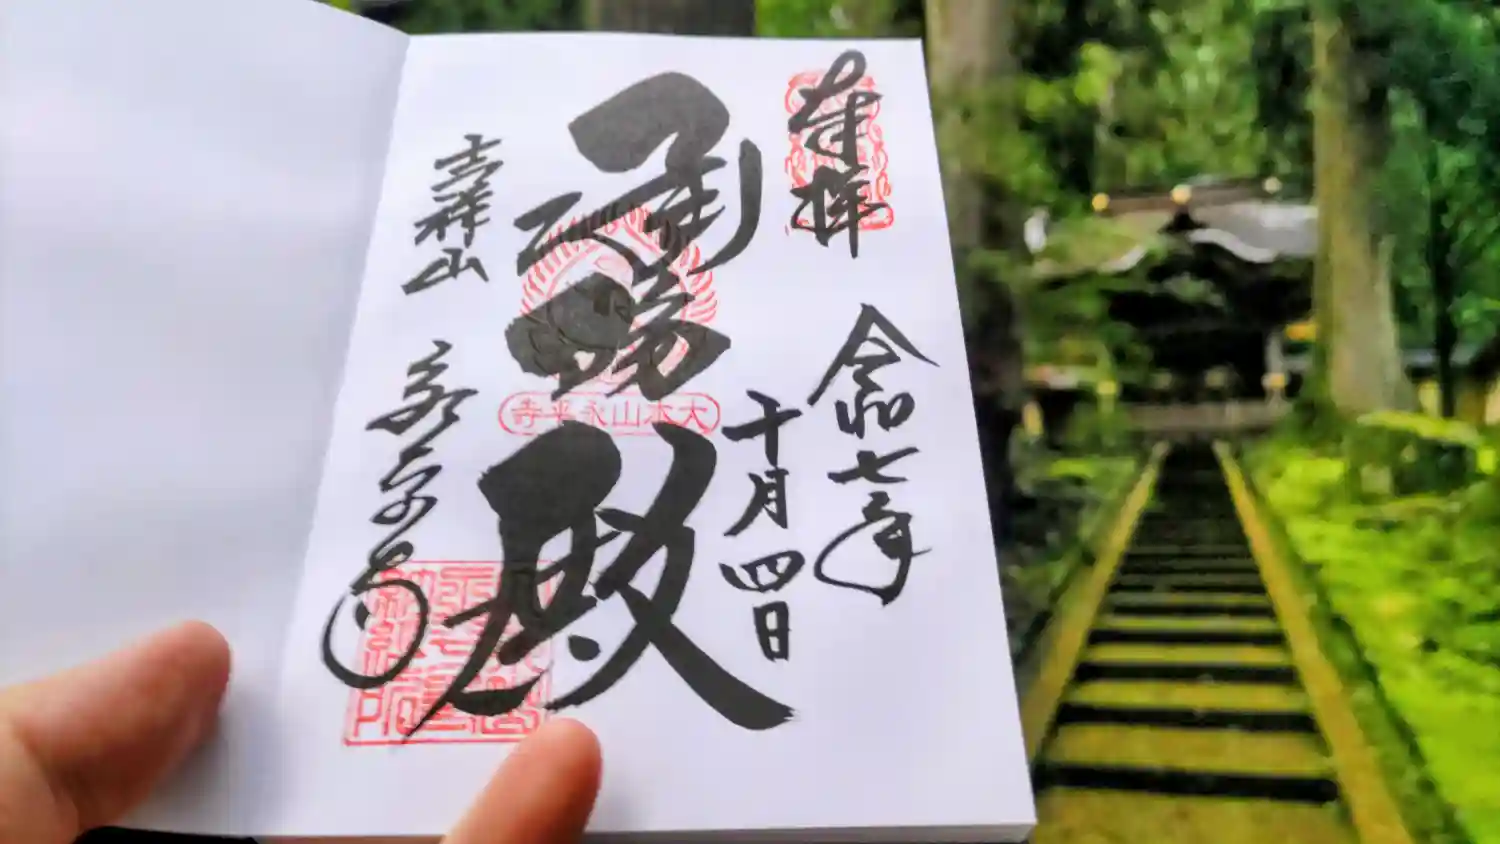 奉拝
令和七年
十月四日
承陽殿
大本山永平寺
吉祥山
永平寺